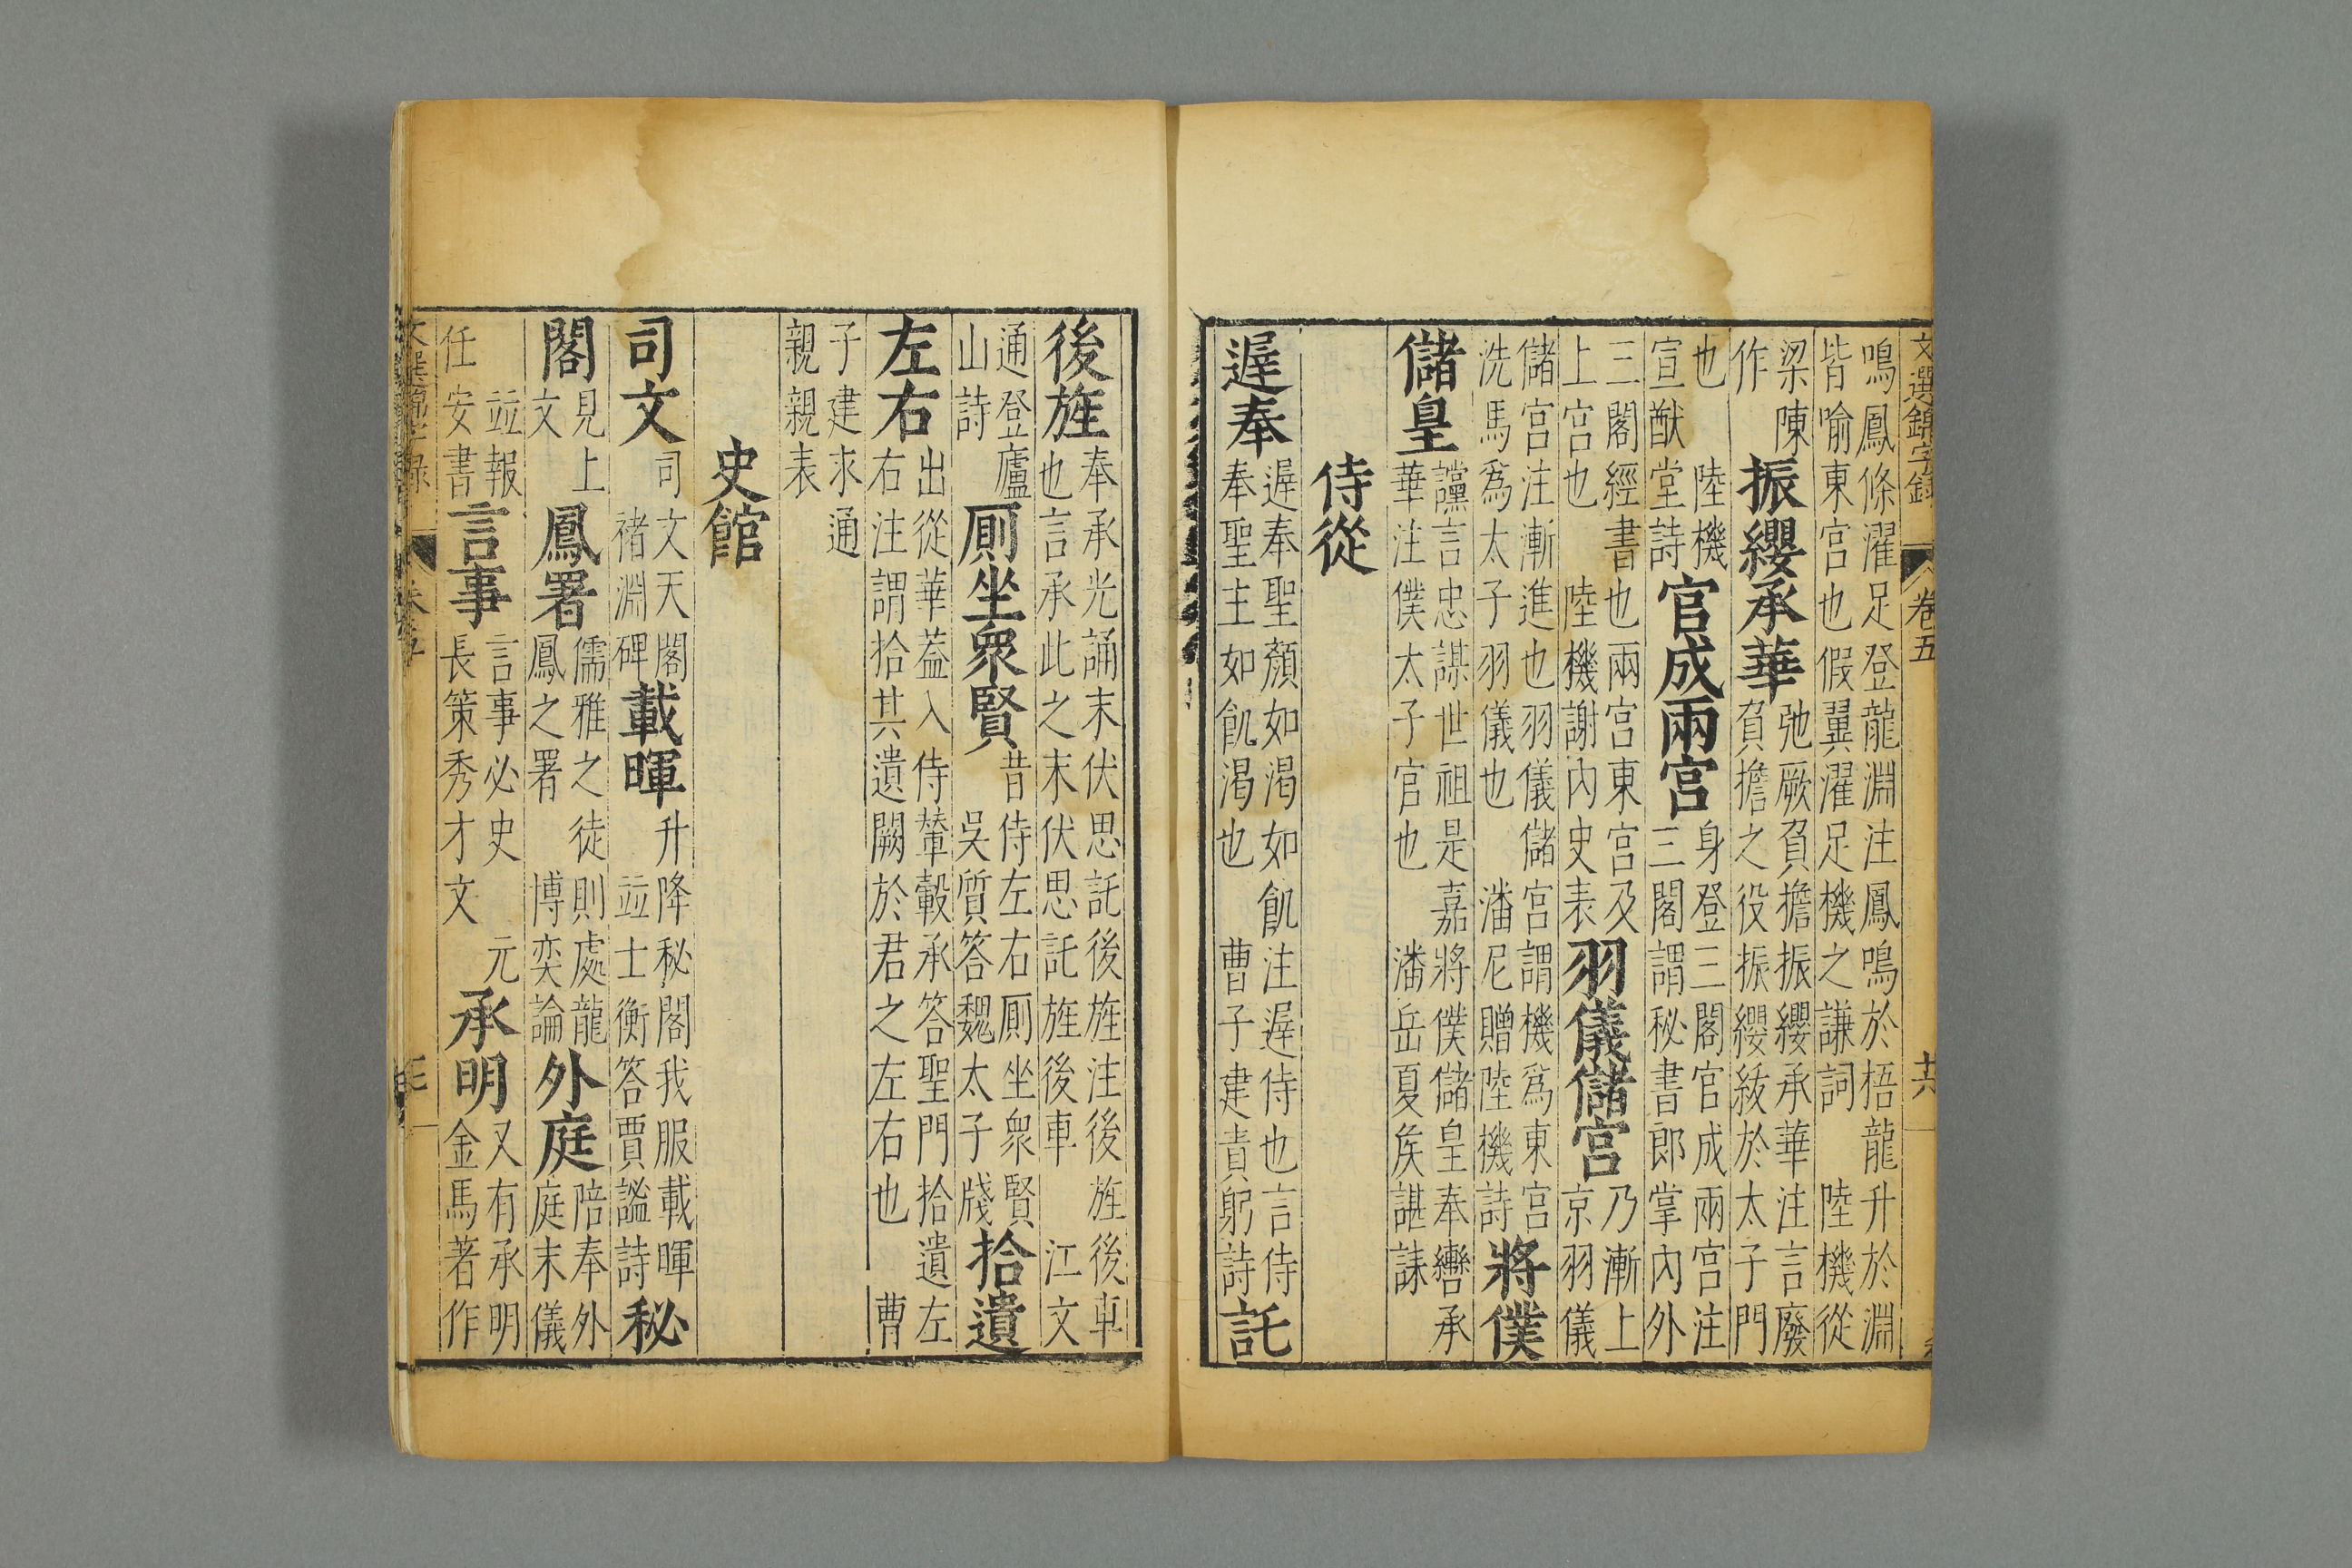 文選錦字錄 卷五 十六
鳴鳳條濯足登龍淵注鳳鳴於梧龍升於淵
皆喻東宮也假翼濯足機之謙詞 陸機從
梁陳
作
振纓承華
弛厥負擔振纓承華注言廢
負擔之役振纓紱於太子門
也 陸機
宣猷堂詩
官成兩宮
身登三閣官成兩宮注
三閣謂秘書郎掌內外
三閣經書也兩宮東宮及
上宮也 陸機謝內史表
羽儀儲宮
乃漸上
京羽儀
儲宮注漸進也羽儀儲宮謂機爲東宮
洗馬爲太子羽儀也 潘尼贈陸機詩
將僕
儲皇
讜言忠謀世祖是嘉將僕儲皇奉轡承
華注僕太子官也 潘岳夏矦諶誄
侍從
遲奉
遲奉聖顏如渴如飢注遲侍也言侍
奉聖主如飢渴也 曹子建責躬詩
託
後旌
奉承光誦末伏思託後旌注後旌後車
也言承此之末伏思託旌後車 江文
通登廬
山詩
厠坐衆賢
昔侍左右厠坐衆賢
吳質答魏太子牋
拾遺
左右
出從華葢入侍輦轂承答聖門拾遺左
右注謂拾其遺闕於君之左右也 曹
子建求通
親親表
史館
司文
司文天閣
褚淵碑
載暉
升降秘閣我服載暉
竝士衡答賈謐詩
秘
閣
見上
文
鳳署
儒雅之徒則處龍
鳳之署 博奕論
外庭
陪奉外
庭末儀
竝報
任安書
言事
言事必史 元
長策秀才文
承明
又有承明
金馬著作